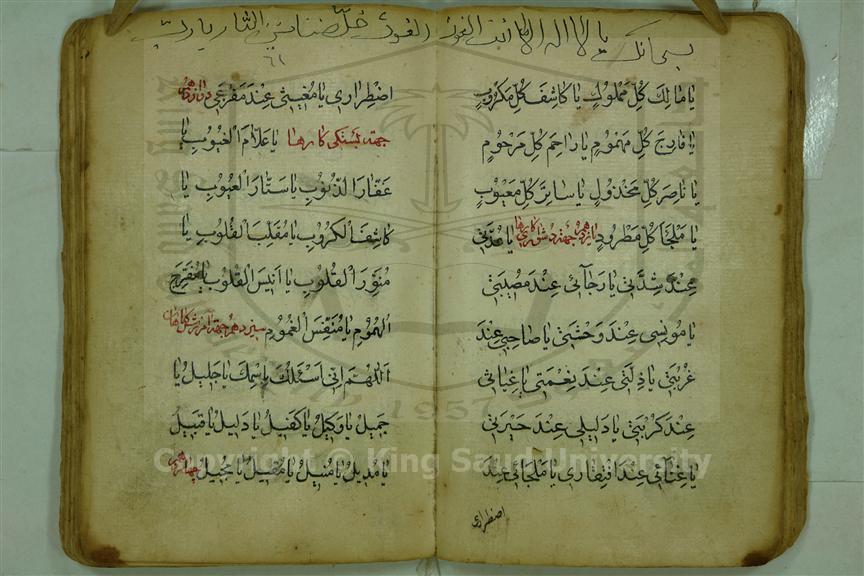 سبحانك يا لا اله الا انت الغوث الغوث خلصنا من النار يا رب
يَا مَالِكَ كُلِّ مَمْلُوكٍ يَا كَاشِفَ كُلِّ مَكْرُوبٍ
يَا فَارِجَ كُلِّ مَهْمُومٍ يَا رَاحِمَ كُلِّ مَرْحُومٍ
يَا نَاصِرَ كُلِّ مَخْذُولٍ يَا سَاتِرَ كُلِّ مَعْيُوبٍ
يَا مَلْجَأَ كُلِّ مَطْرُودٍ يَا عُدَّتِي
عِنْدَ شِدَّتِي يَا رَجَائِي عِنْدَ مُصِيبَتِي
يَا مُونِسِي عِنْدَ وَحْشَتِي يَا صَاحِبِي عِنْدَ
غُرْبَتِي يَا عِنْدَ نِعْمَتِي يَا غِيَاثِي
عِنْدَ كُرْبَتِي يَا دَلِيلِي عِنْدَ حَيْرَتِي
يَا غِنَائِي عِنْدَ افْتِقَارِي يَا مَلْجَائِي عِنْدَ
اضطراري
٦١
اضْطِرَارِي يَا مُغِيثِي عِنْدَ مَفْزَعِي دوازدهم
جهة بستكى كارها يَا عَلَّامَ الْغُيُوبِ يَا
غَفَّارَ الذُّنُوبِ يَا سَتَّارَ الْعُيُوبِ يَا
كَاشِفَ الْكُرُوبِ يَا مُقَلِّبَ الْقُلُوبِ يَا
مُنَوِّرَ الْقُلُوبِ يَا أَنِيسَ الْقُلُوبِ يَا مُفَرِّجَ
الْهُمُومِ يَا مُنَفِّسَ الْغُمُومِ سيزدهم جهة
اَللّٰهُمَّ اِنِّي اَسْئَلُكَ بِاسْمِكَ يَا جَلِيلُ يَا
جَمِيلُ يَا وَكِيلُ يَا كَفِيلُ يَا دَلِيلُ يَا قَبِيلُ
يَا مُدِيلُ يَا مُنِيلُ يَا مُقِيلُ يَا مُحِيلُ چهاردهم
Copyright © King Saud University
1957